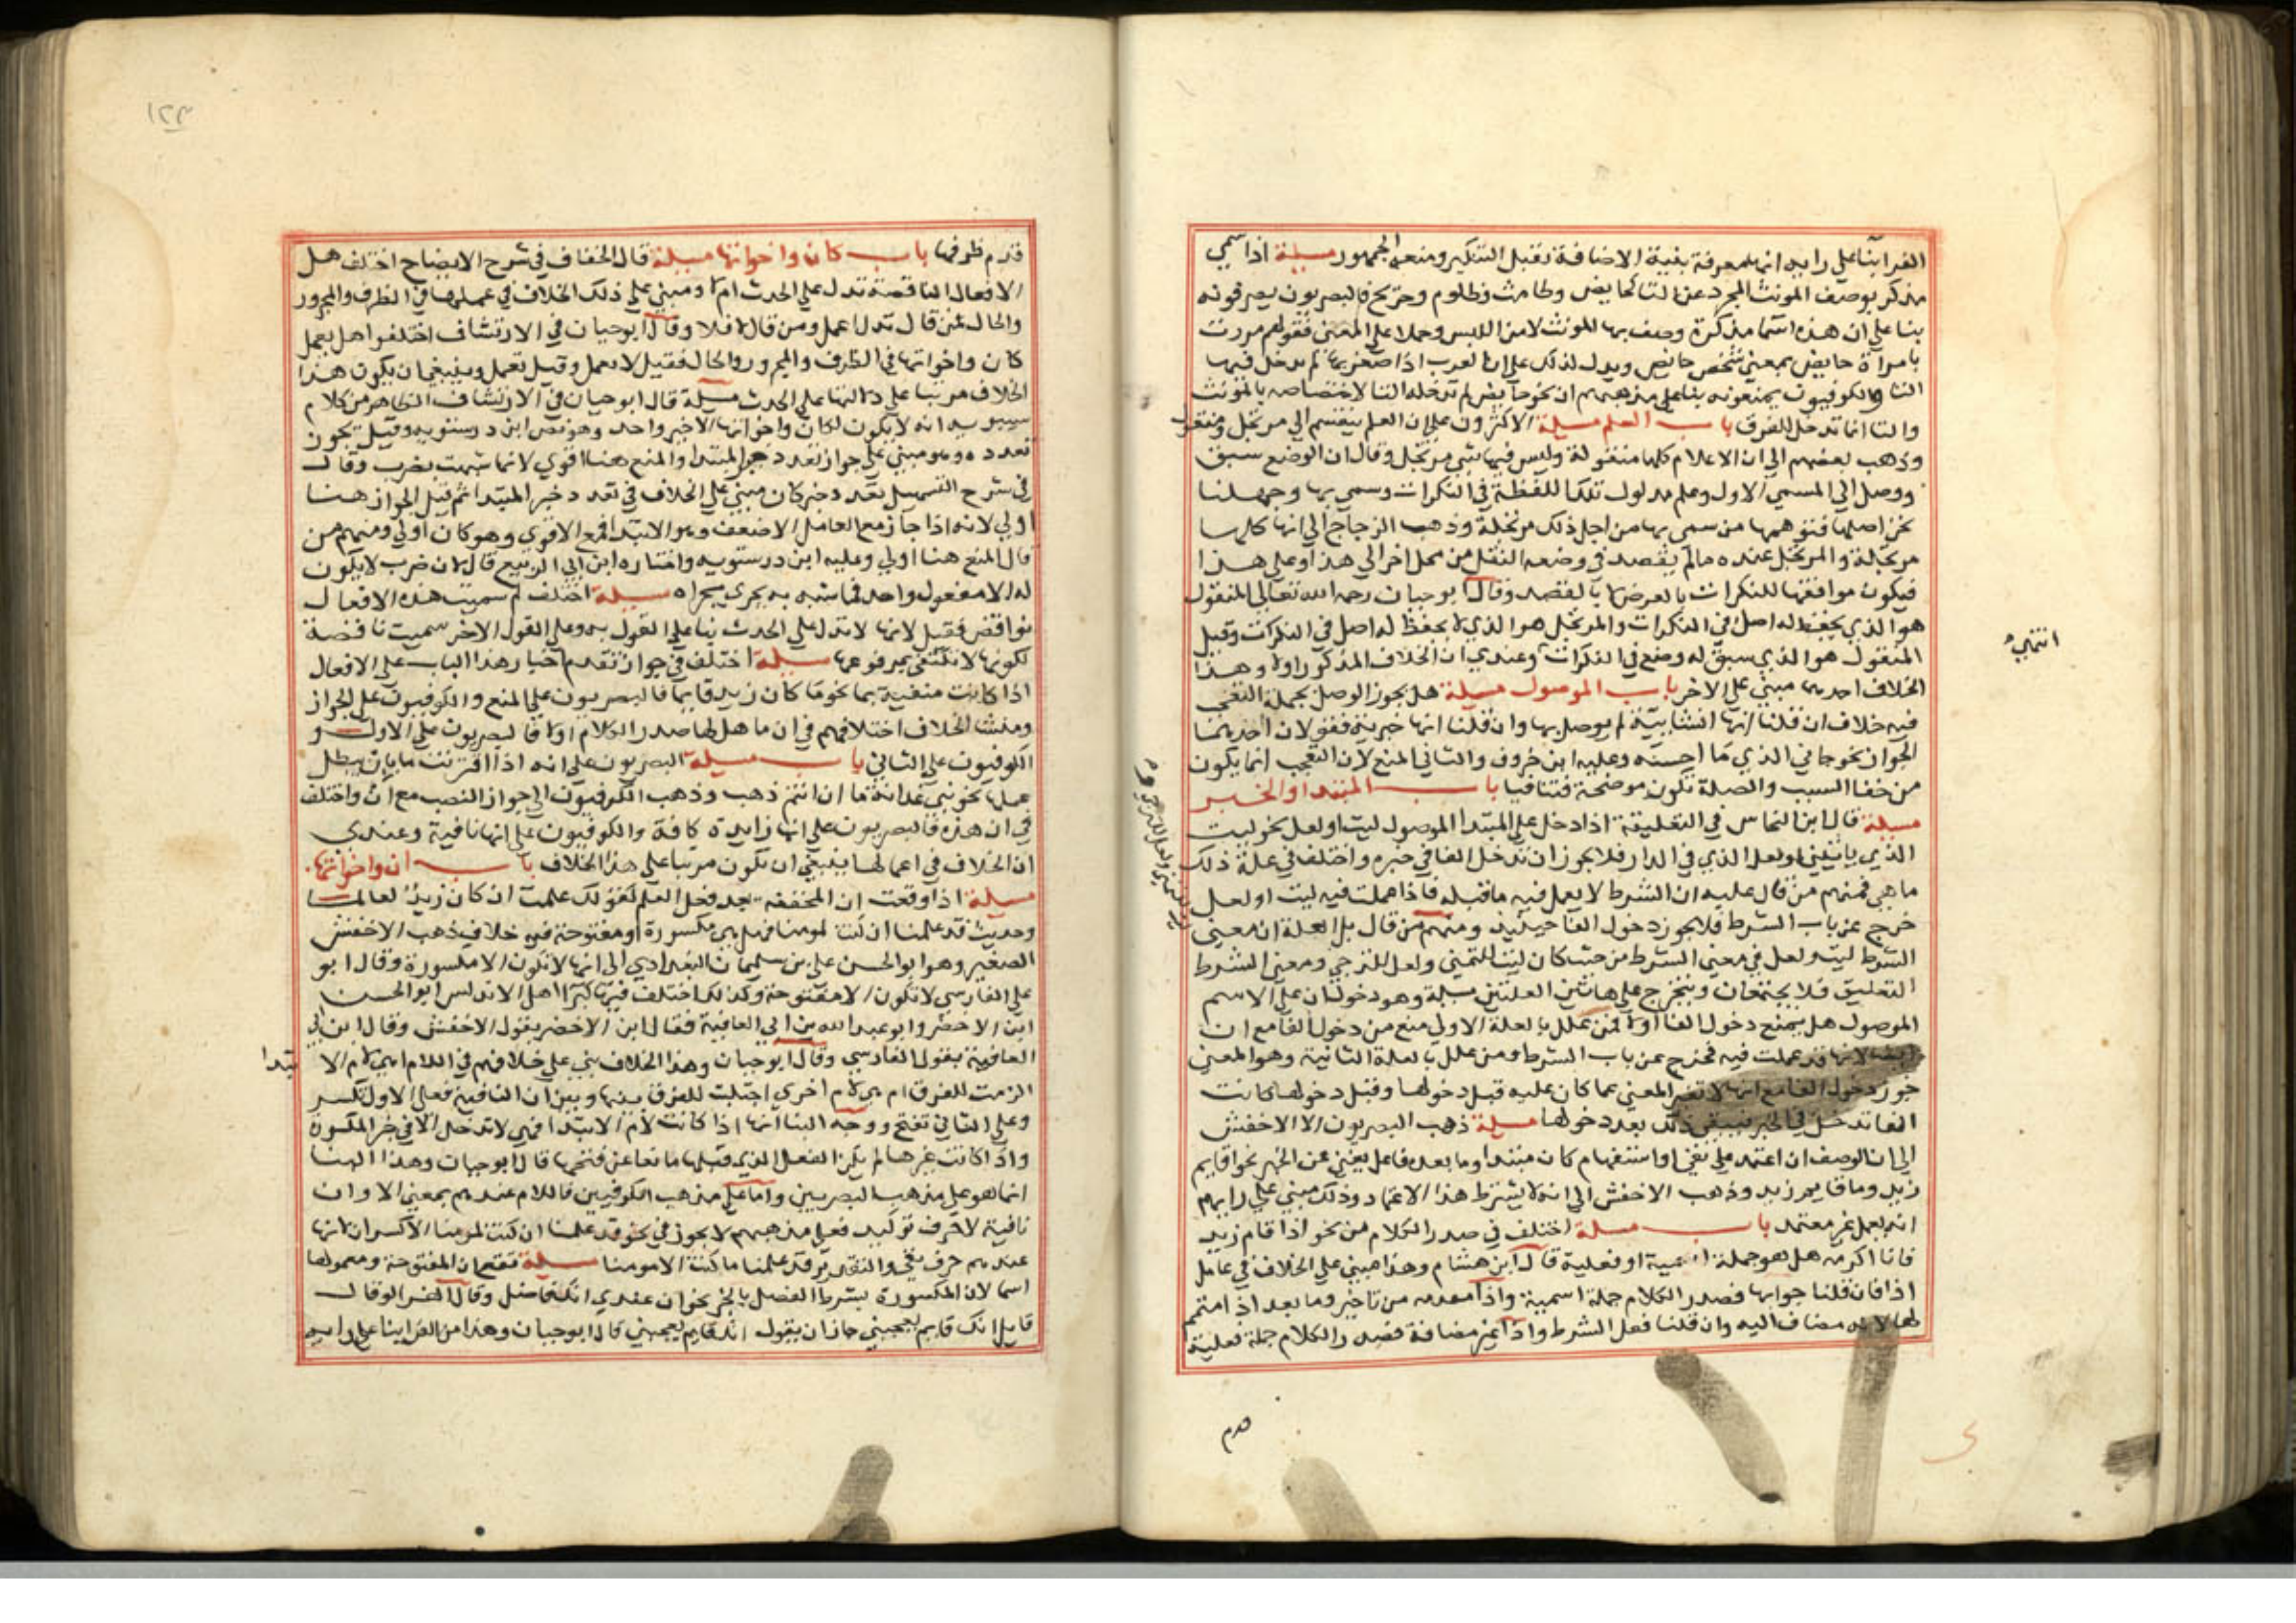 الفرا بنا على رايه انها معرفة بنية الاضافة تقبل التنكير ومنعه الجمهور مسيلة اذا سمي
مذكر بوصف المونث المجرد عن التا كحايض وطامث وظلوم وجريح فالبصريون يصرفونه
بنا على ان هذه اسما مذكرة وصف بها المونث لامن اللبس وحملا على المعنى فقولهم مررت
بامراة حايض بمعنى شخص حايض ويدل لذلك على ان العرب اذا صغرتها لم تدخل فيها
التا والكوفيون يمنعونه بنا على مذهبهم ان نحو حايض لم تدخله التا لاختصاصه بالمونث
والتا انما تدخل للفرق باب العلم مسيلة الاكثرون على ان العلم ينقسم الى مرتجل ومنقول
وذهب بعضهم الى ان الاعلام كلها منقولة وليس فيها شي مرتجل وقال ان الوضع سبق
ووصل الى المسمي الاول وعلم مدلول تلك اللفظة في النكرات وسمي بها وجهلنا
نحن اصلها فتوهمها من سمى بها من اجل ذلك مرتجلة وذهب الزجاج الى انها كلها
مرتجلة والمرتجل عنده ما لم يقصد في وضعه النقل من محل اخر الى هذا وعلى هذا
فيكون موافقتها للنكرات بالعرض لا بالقصد وقال ابو حيان رحمه الله تعالى المنقول
هو الذي يحفظ له اصل في النكرات والمرتجل هو الذي لا يحفظ له اصل في النكرات وقيل
المنقول هو الذي سبق له وضع في النكرات وعندي ان الخلاف المذكور اولا وهذا
انتهى
الخلاف احدهما مبني على الاخر باب الموصول مسيلة هل يجوز الوصل بجملة التعجب
فيه خلاف ان قلنا انها انشائية لم يوصل بها وان قلنا انها خبرية فقولان احدهما
الجواز نحو جاني الذي ما احسنه وعليه ابن خروف والثاني المنع لان التعجب انما يكون
من خفا السبب والصلة تكون موضحة فتنافيا باب المبتدا والخبر
مسيلة قال ابن النحاس في التعليقة اذا دخل على المبتدا الموصول ليت او لعل نحو ليت
الذي ياتيني ولعل الذي في الدار فلا يجوز ان تدخل الفا في خبره واختلف في علة ذلك
ما هي فمنهم من قال عليه ان الشرط لا يعمل فيه ما قبله فاذا عملت فيه ليت او لعل
خرج عن باب الشرط فلا يجوز دخول الفا حينئذ ومنهم من قال بل العلة ان معنى
الشرط ليت ولعل في معنى الشرط من حيث كان ليت للتمني ولعل للترجي ومعنى الشرط
التعليق فلا يجتمعان ويتخرج على هاتين العلتين مسيلة وهو دخول ان على الاسم
الموصول هل يمنع دخول الفا اولا فمن علل بالعلة الاولى منع من دخول الفا مع ان
ايضا لانها قد عملت فيه فخرج عن باب الشرط ومن علل بالعلة الثانية وهو المعنى
جوز دخول الفا مع انها لا تغير المعنى عما كان عليه قبل دخولها وقبل دخولها كانت
الفا تدخل في الخبر فيبقى ذلك بعد دخولها مسيلة ذهب البصريون الا الاخفش
الى ان الوصف ان اعتمد على نفي او استفهام كان مبتدا وما بعده فاعل يغني عن الخبر نحو اقايم
زيد وما قايم زيد وذهب الاخفش الى انه لا يشترط هذا الاعتماد وذلك مبني على رايهم
انه يعمل غير معتمد باب مسيلة اختلف في صدر الكلام من نحو اذا قام زيد
فانا اكرمه هل هو جملة اسمية او فعلية قال ابن هشام وهذا مبني على الخلاف في عامل
اذا فان قلنا جوابها فصدر الكلام جملة اسمية واذا مقدمه من تاخير وما بعد اذا متمم
لها لانه مضاف اليه وان قلنا فعل الشرط واذا غير مضافة فصدر الكلام جملة فعلية
قدم
١٢٣
قدم ظرفها باب كان واخواتها مسيلة قال الخفاف في شرح الايضاح اختلف هل
الافعال الناقصة تدل على الحدث ام لا ومبني على ذلك الخلاف في عملها في الظرف والمجرور
والحال فمن قال تدل اعمل ومن قال لا فلا وقال ابو حيان في الارتشاف اختلفوا هل يعمل
كان واخواتها في الظرف والمجرور والحال فقيل لا يعمل وقيل تعمل وينبغي ان يكون هذا
الخلاف مرتبا على دلالتها على الحدث مسيلة قال ابو حيان في الارتشاف الظاهر من كلام
سيبويه انه لا يكون لكان واخواتها الا خبر واحد وهو نص ابن درستويه وقيل يجوز
تعدده وهو مبني على جواز تعدد خبر المبتدا والمنع هنا اقوى لانها شبهت بضرب وقال
في شرح التسهيل تعدد خبر كان مبني على الخلاف في تعدد خبر المبتدا ثم قيل الجواز هنا
اولى لانه اذا جاز مع العامل الاضعف وهو الابتدا فمع الاقوى وهو كان اولى ومنهم من
قال المنع هنا اولى وعليه ابن درستويه واختاره ابن ابي الربيع قال لان ضرب لا يكون
له الا مفعول واحد فما شبه به يجري مجراه مسيلة اختلف لم سميت هذه الافعال
نواقص فقيل لانها لا تدل على الحدث بنا على القول به وعلى القول الاخر سميت ناقصة
لكونها لا تكتفي بمرفوعها مسيلة اختلف في جواز تقدم اخبار هذا الباب على الافعال
اذا كانت منفية بما نحو ما كان زيد قايما فالبصريون على المنع والكوفيون على الجواز
ومنشا الخلاف اختلافهم في ان ما هل لها صدر الكلام او لا فالبصريون على الاول و
الكوفيون على الثاني باب مسيلة البصريون على انه اذا اقترنت ما بان يبطل
عملها نحو بني غدانة ما ان انتم ذهب وذهب الكوفيون الى جواز النصب مع ان واختلف
في ان هذه فالبصريون على انها زايدة كافة والكوفيون على انها نافية وعندي
ان الخلاف في اعمالها ينبغي ان يكون مرتبا على هذا الخلاف باب ان واخواتها
مسيلة اذا وقعت ان المخففة بعد فعل العلم كقولك علمت ان كان زيد لعالما
وحديث قد علمنا ان كنت لمومنا فهل هي مكسورة او مفتوحة فيه خلاف فذهب الاخفش
الصغير وهو ابو الحسن علي بن سليمان البغدادي الى انها لا تكون الا مكسورة وقال ابو
علي الفارسي لا تكون الا مفتوحة وكذلك اختلف فيها كبرا اهل الاندلس ابو الحسن
ابن الاخضر وابو عبد الله بن ابي العافية فقال ابن الاخضر بقول الاخفش وقال ابن ابي
العافية بقول الفارسي وقال ابو حيان وهذا الخلاف بني على خلافهم في اللام اهي لام الا
بتدا
الزمت للفرق ام هي لام اخرى اجتلبت للفرق بينها وبين ان النافية فعلى الاول تكسر
وعلى الثاني تفتح ووجه البنا انها اذا كانت لام الابتدا فهي لا تدخل الا في خبر المكسورة
واذا كانت غيرها لم يكن الفعل الذي قبلها مانعا عن فتحها قال ابو حيان وهذا البنا
انما هو على مذهب البصريين واما على مذهب الكوفيين فاللام عندهم بمعنى الا وان
نافية لا حرف توكيد فعلى مذهبهم لا يجوز في نحو قد علمنا ان كنت لمومنا الا كسر ان لانها
عندهم حرف نفي والتقدير قد علمنا ما كنت الا مومنا مسيلة تقع ان المفتوحة ومعمولها
اسما لان المكسورة بشرط الفصل بالخبر نحو ان عندي انك فاضل وقال الفرا لو قال
قايل انك قايم يعجبني جاز ان يقول ان انك قايم يعجبني قال ابو حيان وهذا من الفرا بنا على رايهم